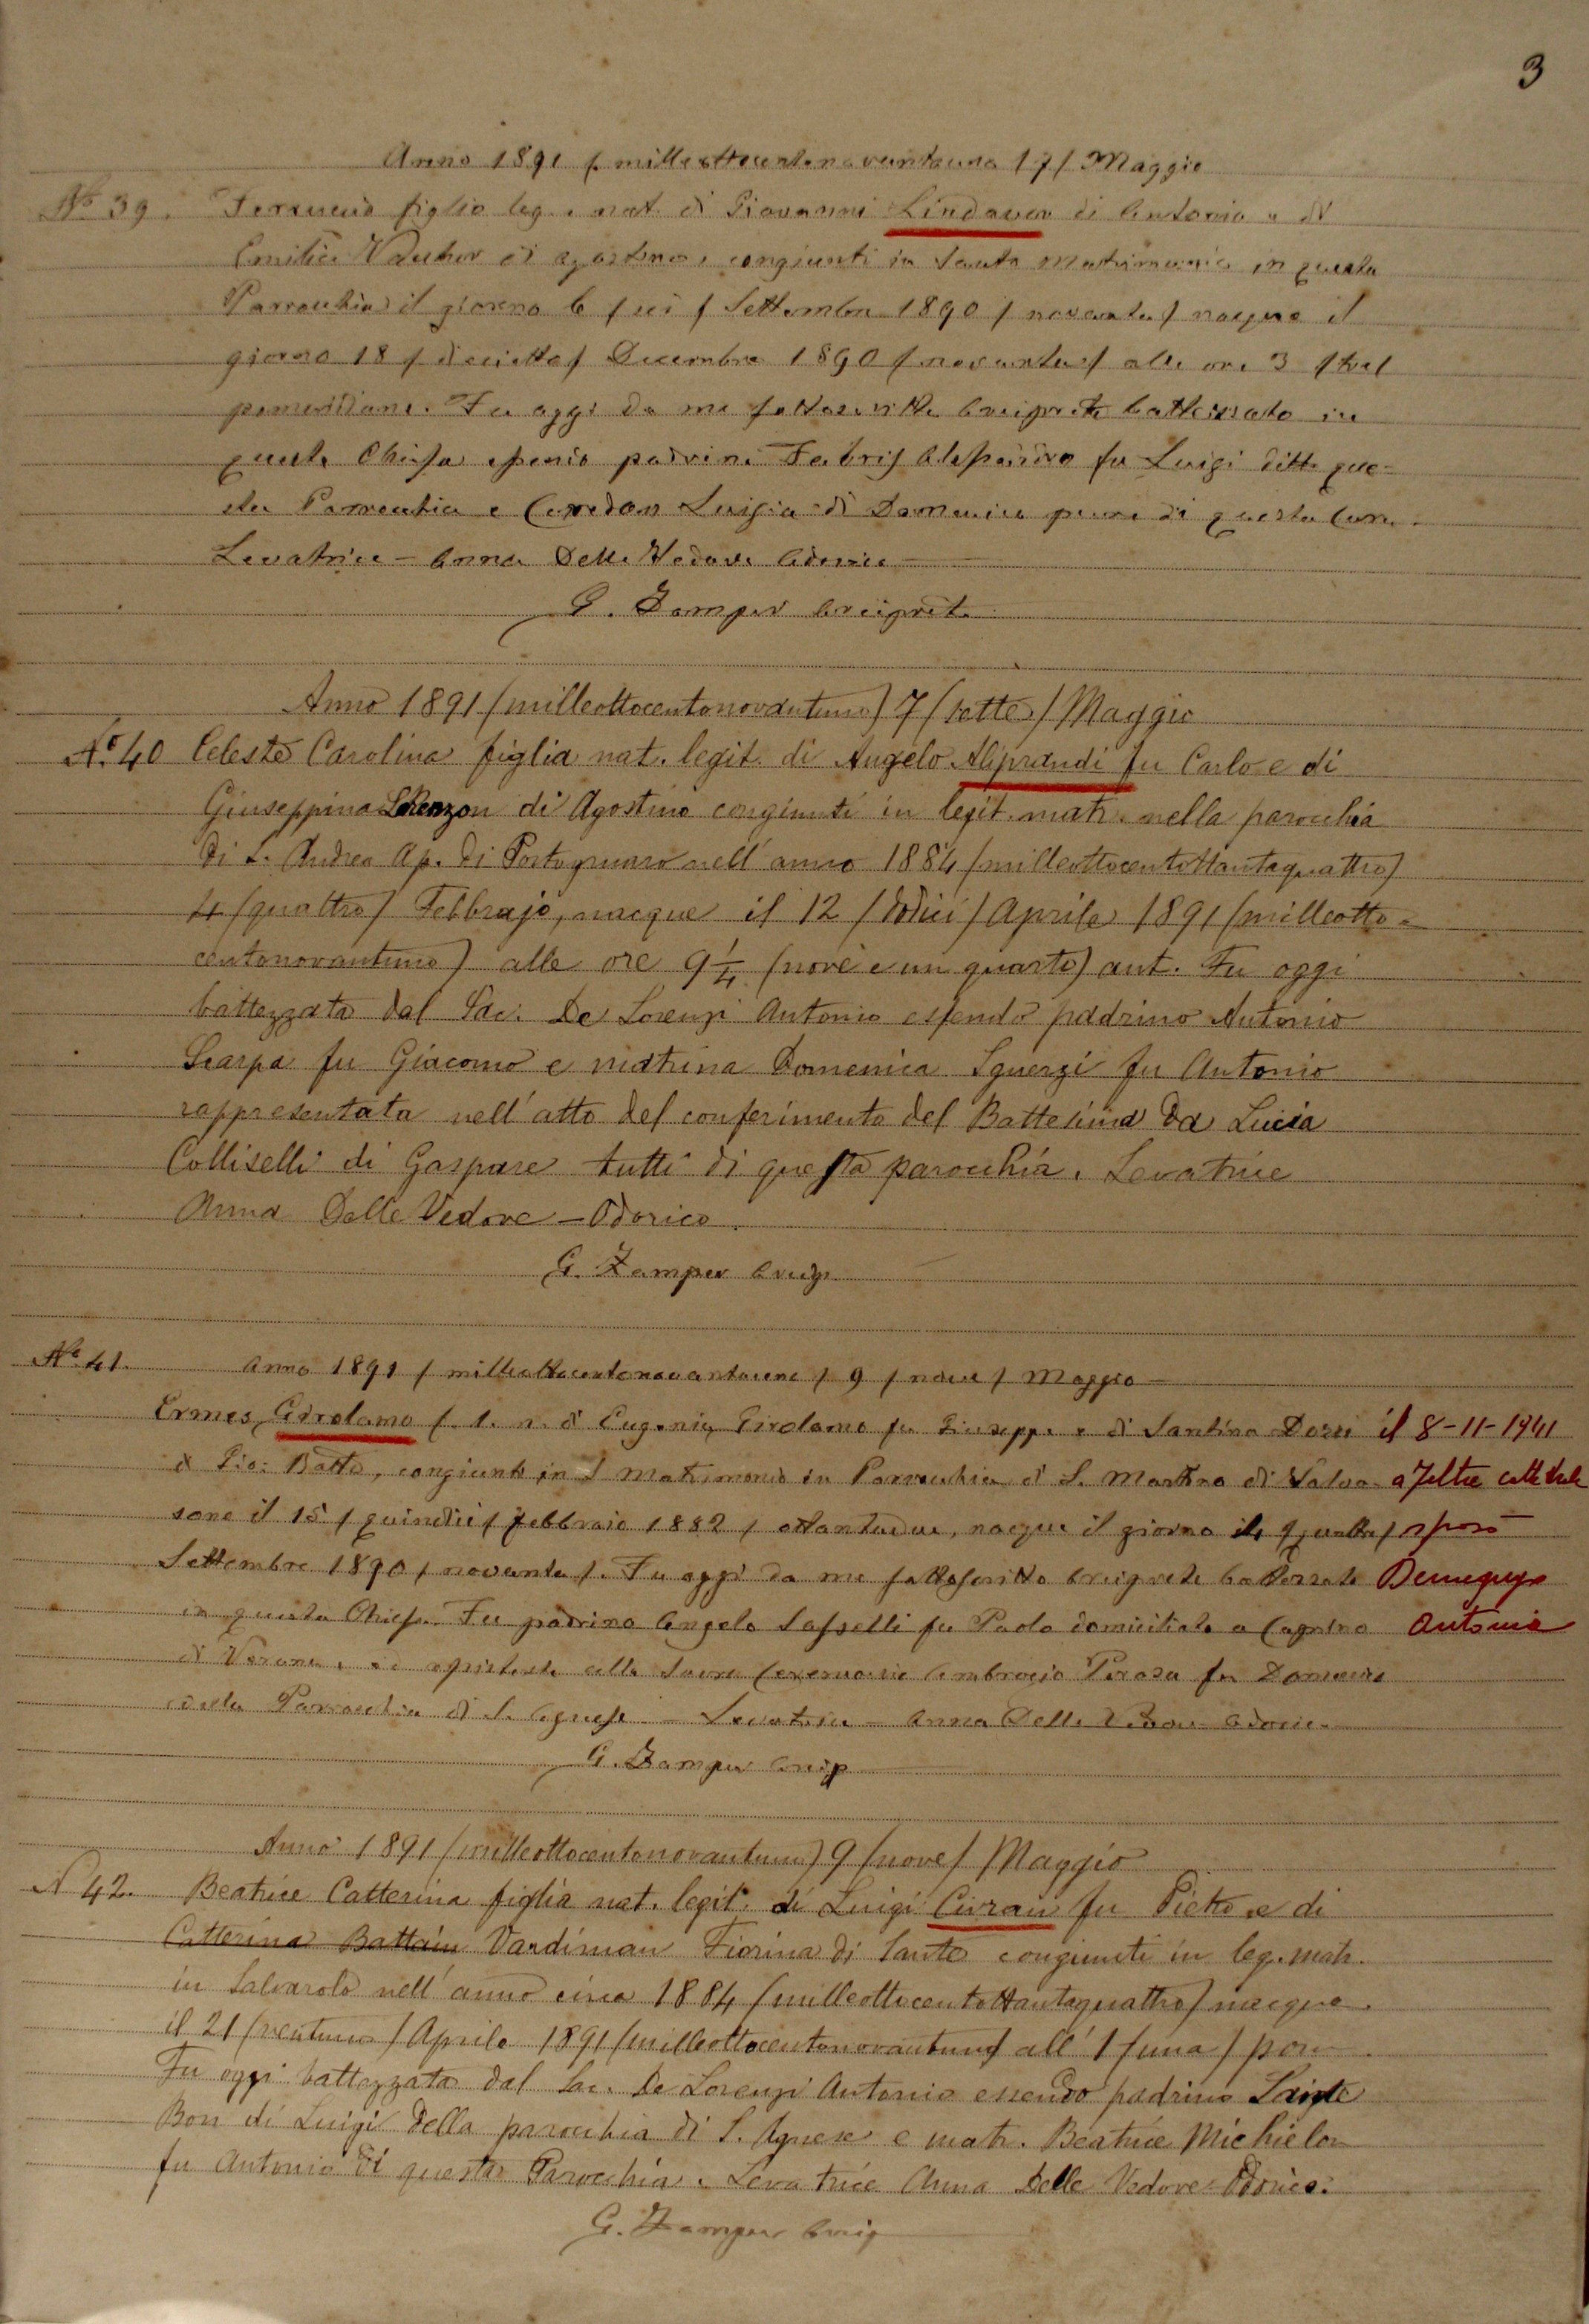 3
Anno 1891 / milleottocentonovantauno 17 / Maggio
No 39. Ferruccio figlio leg. e nat. di Giovanni Lindaver di Antonio e di
Emilia di Agostino, congiunti in Santo Matrimonio in questa
Parrochia il giorno 6 / sei / Settembre 1890 / novanta / nacque il
giorno 18 / dieciotto / Decembre 1890 / novanta / alle ore 3 / tre /
pomeridiane. Fu oggi da me sottoscritto Arciprete battezzato in
questa Chiesa essendo padrini Fabris Alessandro fu Luigi di que-
sta Parrochia e Ceredon Luigia di Domenico pure di questa Cura.
Levatrice - Anna Delle Vedove Odorico
G. Zamper Arciprete
Anno 1891 / milleottocentonovantuno / 7 / sette / Maggio
No. 40 Celeste Carolina figlia nat. legit. di Angelo Aliprandi fu Carlo e di
Giuseppina Lorenzon di Agostino congiunti in legit. matr. nella parochia
di S. Andrea Ap. di Portogruaro nell'anno 1884 / milleottocentottantaquattro /
4 / quattro / Febbrajo, nacque il 12 / dodici / Aprile 1891 / milleotto-
centonovantuno / alle ore 9 1/4 (nove e un quarto) ant. Fu oggi
battezzata dal Sac. De Lorenzi Antonio essendo padrino Antonio
Scarpa fu Giacomo e matrina Domenica Sguerzi fu Antonio
rappresentata nell'atto del conferimento del Battesimo da Lucia
Colliselli di Gaspare tutti di questa parochia. Levatrice
Anna Delle Vedove - Odorico.
G. Zamper Arcip.
No. 41. Anno 1891 / milleottocentonovantauno / 9 / nove / Maggio
Ermes Girolamo f. l. n. di Eugenio Girolamo fu Giuseppe e di Santina Dozzi il 8-11-1941
di Gio: Batta, congiunti in S. Matrimonio in Parrochia di S. Martino di Valva- a Feltre cattedrale
sone il 15 / quindici / Febbraio 1882 / ottantadue, nacque il giorno 4 / quattro / sposò
Settembre 1890 / novanta /. Fu oggi da me sottoscritto Arciprete battezzato
in questa Chiesa. Fu padrino Angelo Sasselli fu Paolo domiciliato a Antonia
di Verona, ed assistente alla Sacra Ceremonia Ambrogio Perosa fu Domenico
della Parrochia di S. Agnese - Levatrice - Anna Delle Vedove Odorico
G. Zamper Arcip
Anno 1891 / milleottocentonovantuno / 9 / nove / Maggio
N 42. Beatrice Catterina figlia nat. legit. di Luigi Civran fu Pietro e di
Catterina Battain Vardiman Fiorina di Sante congiunti in leg. matr.
in Salvarolo nell'anno circa 1884 / milleottocentottantaquattro / nacque
il 21 / ventuno / Aprile 1891 / milleottocentonovantuno / all'1 / una / pom.
Fu oggi battezzata dal Sac. De Lorenzi Antonio essendo padrino Sante
Bon di Luigi della parochia di S. Agnese e matr. Beatrice Michielon
fu Antonio di questa Parochia. Levatrice Anna Delle Vedove Odorico.
G. Zamper Arcip